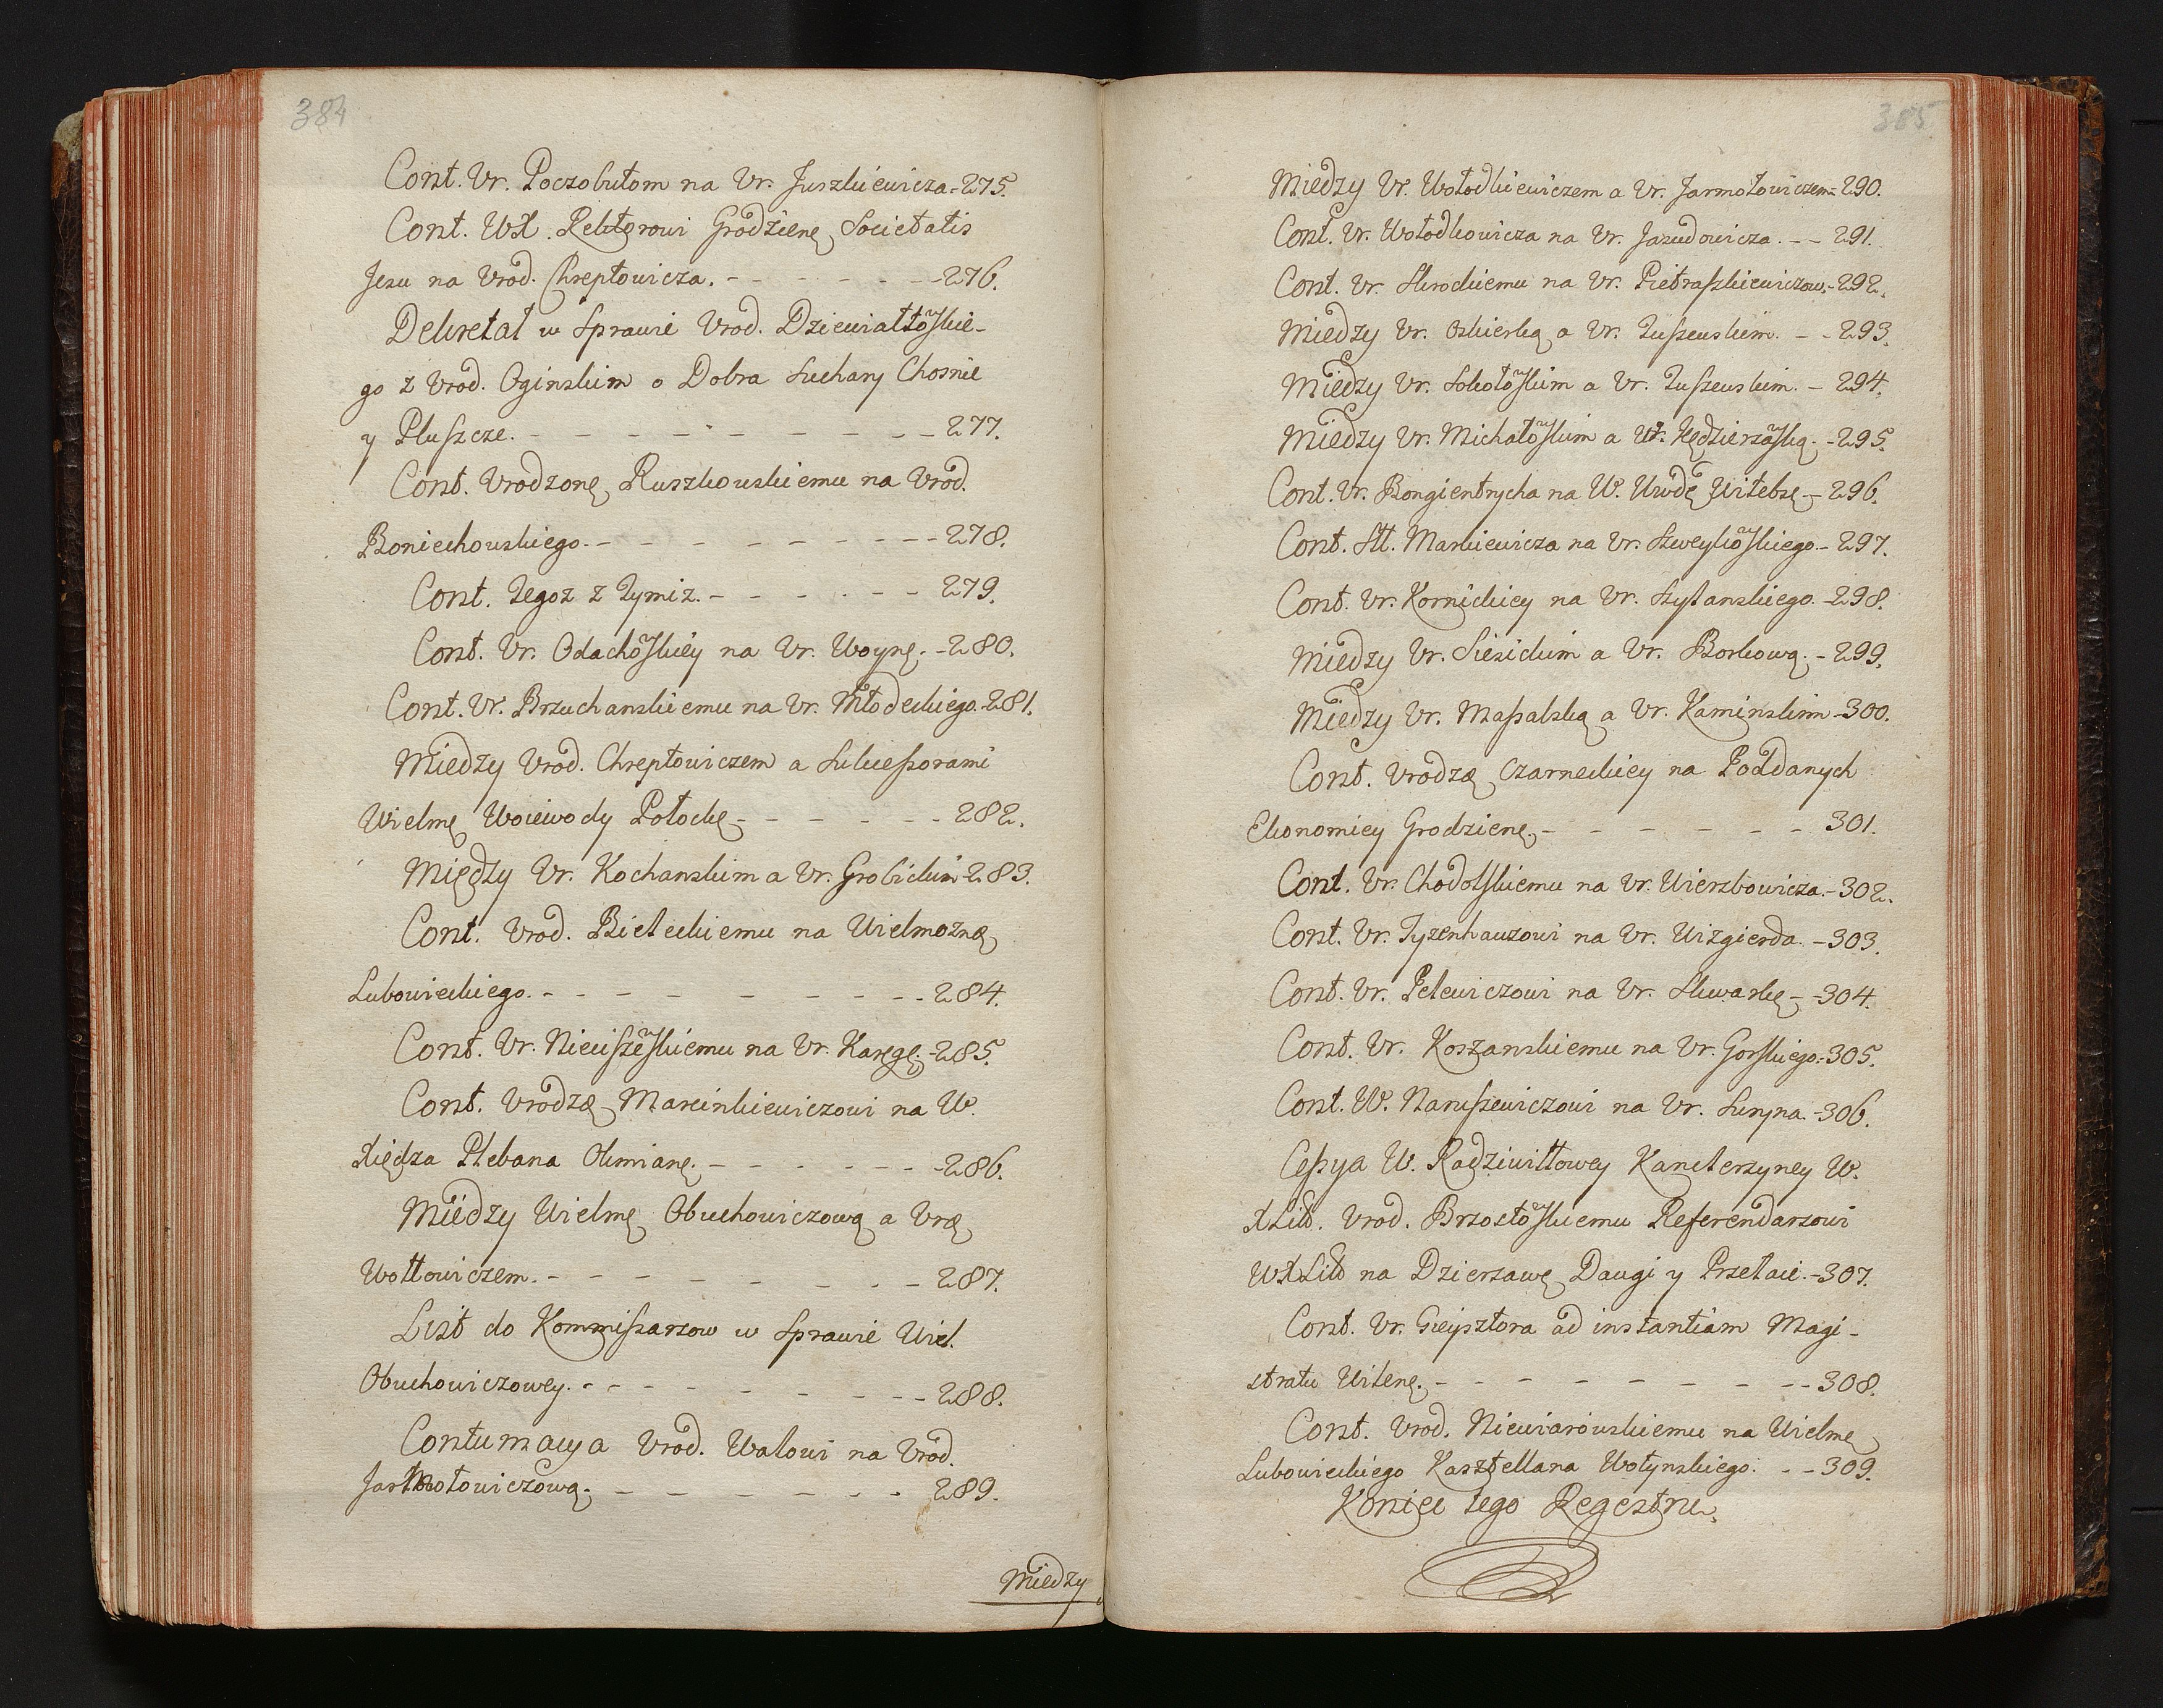 384
Cont. Ur. Poczobutom na Ur. Juszkiewicza. - 275.
Cont. WX. Rektorowi Grodzienę Societatis
Jesu na Urod. Chreptowicza. - - - - - - 276.
Dekretał w Sprawie Urod. Dziewiałtoskie-
go z Urod. Oginskim o Dobra Suchary Chosnie
y Pluszcze. - - - - - - - - - 277.
Cont. Urodzonę Ruszkowskiemu na Urod.
Boniechowskiego. - - - - - - - - 278.
Cont. Tegoz z Tymiz. - - - - - - 279.
Cont. Ur. Odachoskiey na Ur. Woynę. - 280.
Cont. Ur. Brzuchanskiemu na Ur. Młodeckiego. - 281.
Miedzy Urod. Chreptowiczem a Sukceszorami
Wielmę Woiewody Połockę - - - - - - 282.
Między Ur. Kochanskim a Ur. Grobickim - 283.
Cont. Urod. Bieleckiemu na Wielmozną
Lubowieckiego. - - - - - - - - 284.
Cont. Ur. Niewiszeskiemu na Ur. Karęgę. - 285.
Cont. Urodzę Marcinkiewiczowi na W.
Xiędza Plebana Oszmianę. - - - - - - 286.
Miedzy Wielmę Obuchowiczową a Urę
Wołłowiczem. - - - - - - - - 287.
List do Kommiszarzow w Sprawie Wiel.
Obuchowiczowey. - - - - - - - - 288.
Contumacya Urod. Walowi na Urod.
Jarmołowiczową. - - - - - - - 289.
Miedzy
385
Miedzy Ur. Wołodkiewiczem a Ur. Jarmołowiczem - 290.
Cont. Ur. Wołodkowicza na Ur. Jazudowicza. - - 291.
Cont. Ur. Skrockiemu na Ur. Pietraszkiewiczow. - 292.
Miedzy Ur. Oskierką a Ur. Tuszewskim. - - 293.
Miedzy Ur. Sokołoskim a Ur. Tuszewskim. - 294.
Miedzy Ur. Michałoskim a Ur. Kędzierzaską. - 295.
Cont. Ur. Bongientrycha na W. Uwdę Witebsę. - 296.
Cont. Stt. Markiewicza na Ur. Szweykoskiego. - 297.
Cont. Ur. Kornickiey na Ur. Szytanskiego. - 298.
Miedzy Ur. Siesickim a Ur. Borkową. - 299.
Miedzy Ur. Maszalską a Ur. Kaminskim - 300.
Cont. Urodzę Czarneckiey na Poddanych
Ekonomiey Grodzienę. - - - - - - 301.
Cont. Ur. Chodolskiemu na Ur. Wierzbowicza. - 302.
Cont. Ur. Tyzenhauzowi na Ur. Wizgierda. - 303.
Cont. Ur. Pelewiczowi na Ur. Skwarkę - - 304.
Cont. Ur. Koszanskiemu na Ur. Gorskiego. - 305.
Cont. W. Naruszewiczowi na Ur. Suryna. - 306.
Ceszya W. Radziwiłłowey Kanclerzyney W.
XLitt. Urod. Brzostoskiemu Referendarzowi
WXLitt na Dzierzawę Daugi y Przełaie. - 307.
Cont. Ur. Gieysztora ad instantiam Magi-
stratu Wilenę. - - - - - - - - - 308.
Cont. Urod. Niewiarowskiemu na Wielmę
Lubowieckiego Kasztellana Wołynskiego. - - 309.
Koniec tego Regestru.